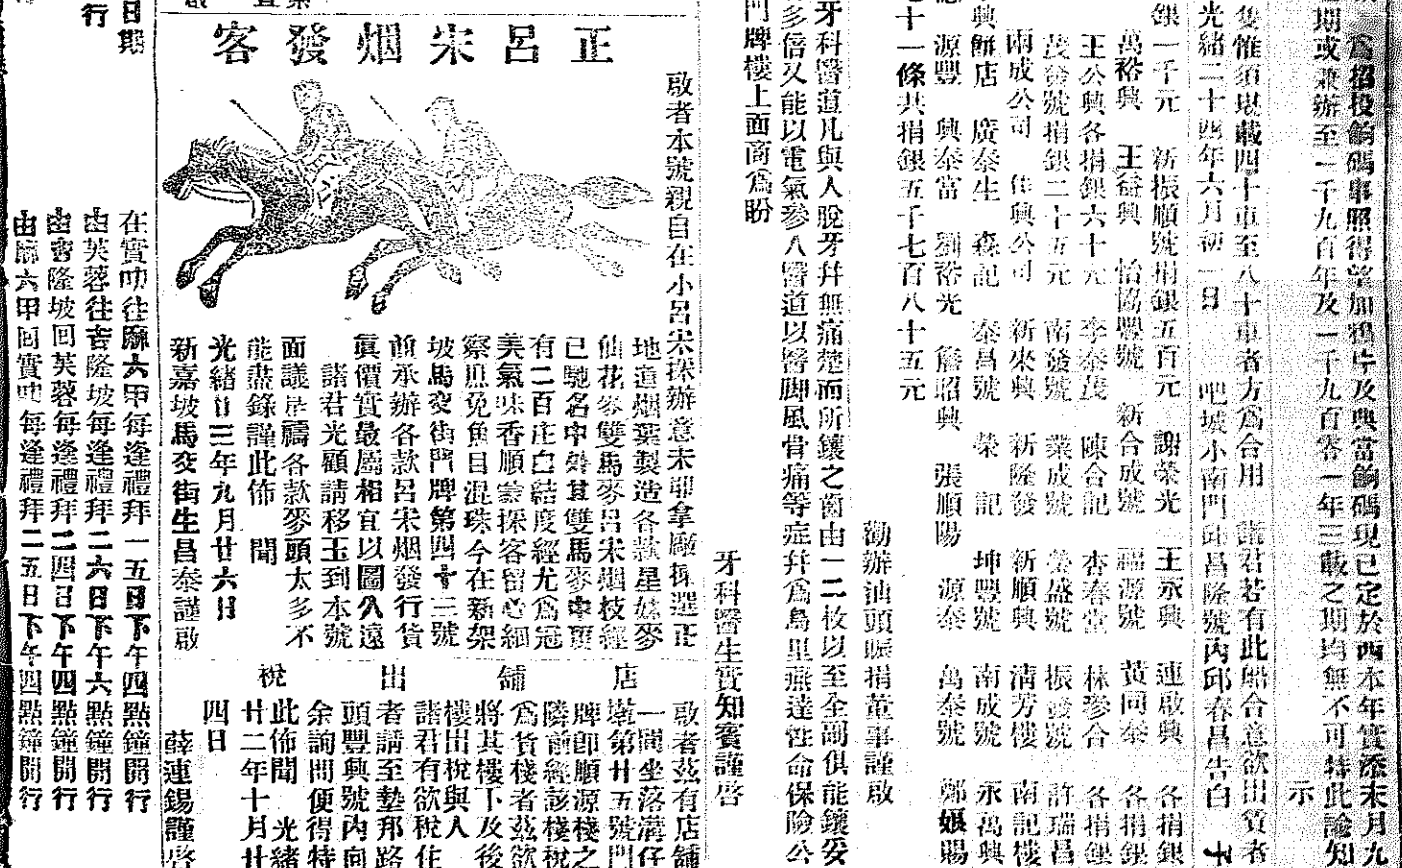 爲招投餉碼事照得望加錫鴉片及典當餉碼現已定於西本年實漆末月九
期或兼辦至一千九百年及一千九百零一年三載之期均無不可特此諭知
示
隻惟須堪載四十車至八十車者方爲合用 諸君若有此船合意欲出賣者
光緒二十四年六月初一日 吧坡小南門邱昌隆號內邱春昌告白
銀一千元 新振順號捐銀五百元 謝榮光 王永興 連啟興 各捐銀
萬裕興 王益興 怡協豐號 新合成號 福源號 黃同泰 各捐銀
王公興各捐銀六十元 李泰茂 陳合記 杏春堂 林參合 各捐銀
茂發號捐銀二十五元 南發號 業成號 榮盛號 振發號 許瑞昌
兩成公司 佳興公司 新來興 新隆發 新順興 清芳樓 南記樓
興餅店 廣泰生 森記 泰昌號 榮記 坤豐號 南成號 永萬興
源豐 興泰當 劉裕光 詹昭興 張順陽 源泰 萬泰號 鄭娘賜
七十一條共捐銀五千七百八十五元
勸辦汕頭賑捐董事謹啟
牙科醫道凡與人脫牙幷無痛楚而所鑲之齒由一二枚以至全副俱能鑲妥
多倍又能以電氣參入醫道以醫脚風骨痛等症幷爲鳥里燕達性命保險公
門牌樓上面商爲盼
牙科醫生實知賓謹啓
正呂宋烟發客
啟者本號親自在小呂宋採辦意末耶拿廠採選正
地道烟葉製造各款星嫲麥
仙花麥雙馬麥呂宋烟枝經
已馳名中外其雙馬麥中裏
有二百庄白結度經尤爲冠
美氣味香順蒙採客留心細
察庶免魚目混珠今在新架
坡馬交街門牌第四十三號
前承辦各款呂宋烟發行貨
眞價實最屬相宜以圖久遠
諸君光顧請移玉到本號
面議是禱各款麥頭太多不
能盡錄謹此佈 聞
光緒廿三年九月廿六日
新嘉坡馬交街生昌泰謹啟
店舖出稅
啟者茲有店舖
一間坐落溝仔
墘第廿五號門
牌卽順源棧之
隣前經該棧稅
爲貨棧者茲欲
將其樓下及後
樓出稅與人
諸君有欲稅住
者請至墊那路
頭豐興號內向
余詢問便得特
此佈聞 光緒
廿二年十月廿
四日
薛連錫謹啓
日期
行
在實叻往麻六甲每逢禮拜一五日下午四點鐘開行
由芙蓉往吉隆坡每逢禮拜二六日下午六點鐘開行
由吉隆坡回芙蓉每逢禮拜二四日下午四點鐘開行
由麻六甲回實叻每逢禮拜二五日下午四點鐘開行